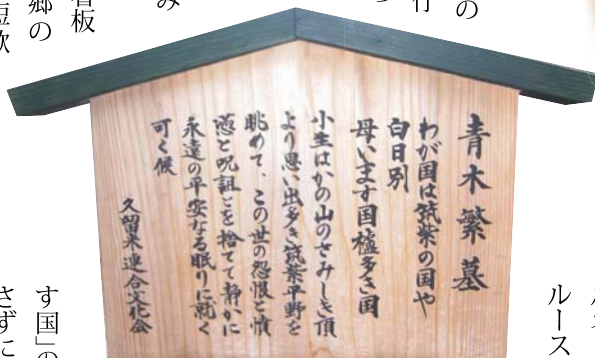 の
行
み
看板
郷の
青木繁墓
わが国は筑紫の国や
白日別
母います国櫨多き国
小生はかの山のさみしき頂
より思い出多き筑紫平野を
眺めて、この世の怨恨と憤
懣と呪詛とを捨てて静かに
永遠の平安なる眠りに就く
可く候
久留米連合文化会
ルース
す国」の
さずに